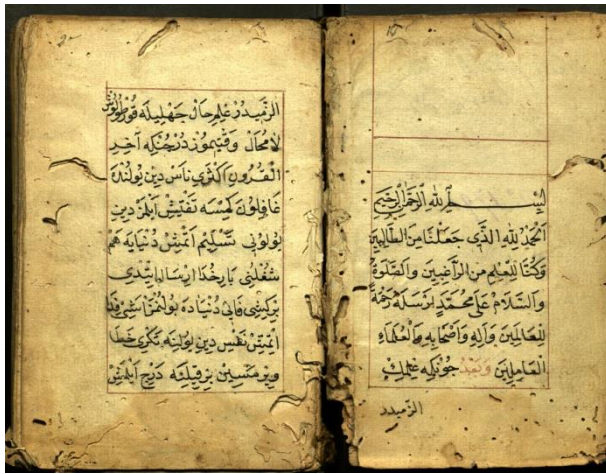 بسم الله الرحمن الرحيم
اَلْحَمْدُ لِلّٰهِ الَّذِى جَعَلَنَا مِنَ الطَّالِبِينَ
وَكُنَّا لِلْعِلْمِ مِنَ الرَّاغِبِينَ وَالصَّلٰوةُ
وَالسَّلَامُ عَلٰى مُحَمَّدٍ رَحْمَةً
لِلْعَالَمِينَ وَآلِهِ وَاَصْحَابِهِ وَالْعُلَمَاءِ
الْعَامِلِينَ وَبَعْدُ جونكه علمك
الزميدر
الزميدر علم حال جهليله
لا محال وقتيموزدر جونكه آخر
القرون اكثرى ناس دين يولنده
غافلون كمسه تفتيش ايلمز دين
يولونى تسليم اتمش دنيايه هم
شغلنى بارخدا ارسال ايتدى
بركيشى فانى دنياده بولنمز
اتمش نفس دين يولنه تكرى خطا
ويرمسين درج ايلمش